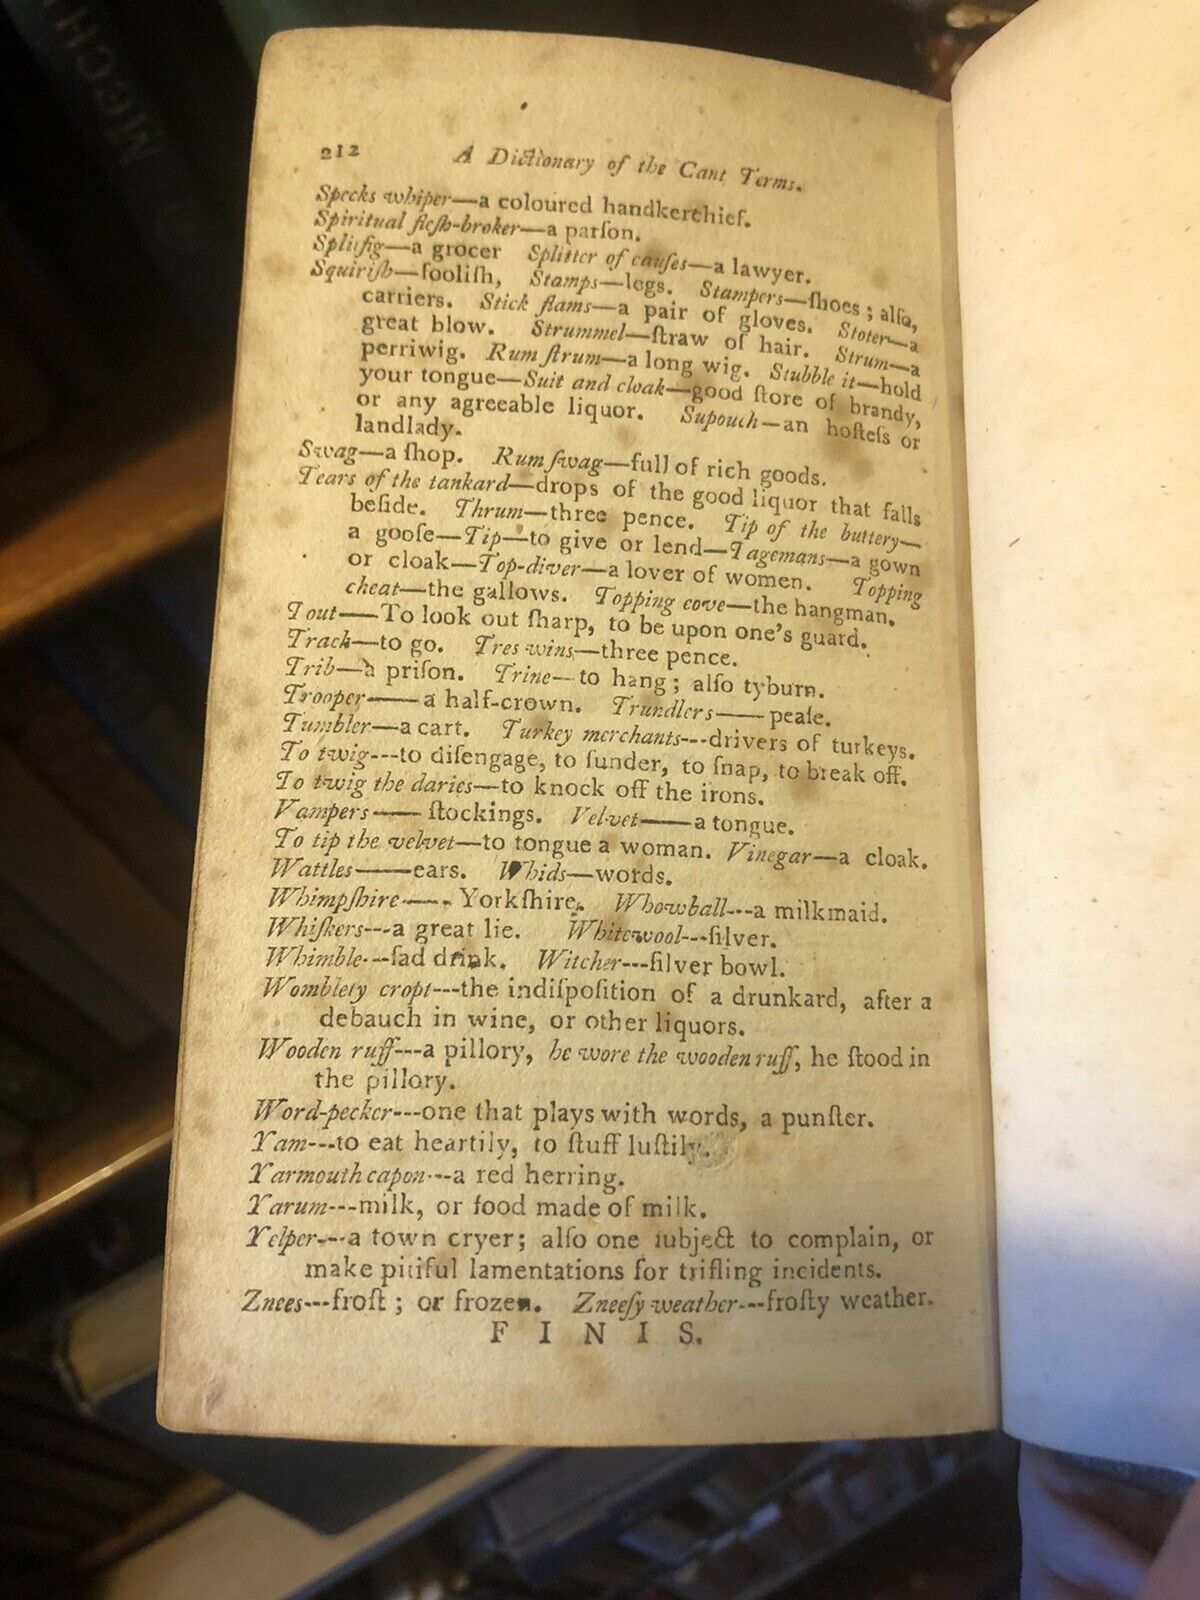 MECH
212 A Dictionary of the Cant Terms.
Specks whiper—a coloured handkerchief.
Spiritual fleſh-broker—a parſon.
Splitfig—a grocer Splitter of cauſes—a lawyer.
Squiriſh—fooliſh, Stamps—legs. Stampers—ſhoes; alſo,
carriers. Stick flams—a pair of gloves. Stoter—a
great blow. Strummel—ſtraw of hair. Strum—a
perriwig. Rum ſtrum—a long wig. Stubble it—hold
your tongue—Suit and cloak—good ſtore of brandy,
or any agreeable liquor. Supouch—an hoſteſs or
landlady.
Swag—a ſhop. Rum ſwag—full of rich goods.
Tears of the tankard—drops of the good liquor that falls
beſide. Thrum—three pence. Tip of the buttery—
a gooſe—Tip—to give or lend—Tagemans—a gown
or cloak—Top-diver—a lover of women. Topping
cheat—the gallows. Topping cove—the hangman.
Tout—To look out ſharp, to be upon one's guard.
Track—to go. Tres wins—three pence.
Trib—a priſon. Trine—to hang; alſo tyburn.
Trooper—a half-crown. Trundlers—peaſe.
Tumbler—a cart. Turkey merchants---drivers of turkeys.
To twig---to diſengage, to ſunder, to ſnap, to break off.
To twig the daries—to knock off the irons.
Vampers—ſtockings. Velvet—a tongue.
To tip the velvet—to tongue a woman. Vinegar—a cloak.
Wattles—ears. Whids—words.
Whimpſhire—Yorkſhire. Whowball---a milkmaid.
Whiſkers---a great lie. Whitewool---ſilver.
Whimble---ſad drink. Witcher---ſilver bowl.
Womblety cropt---the indiſpoſition of a drunkard, after a
debauch in wine, or other liquors.
Wooden ruff---a pillory, he wore the wooden ruff, he ſtood in
the pillory.
Word-pecker---one that plays with words, a punſter.
Yam---to eat heartily, to ſtuff luſtily.
Yarmouth capon---a red herring.
Yarum---milk, or food made of milk.
Yelper---a town cryer; alſo one ſubject to complain, or
make pitiful lamentations for trifling incidents.
Znees---froſt; or frozen. Zneeſy weather---froſty weather.
FINIS.